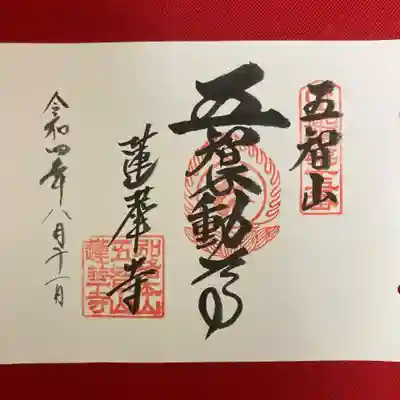 五智山
五智不動尊
蓮華寺
別格本山
五智山
蓮華寺
令和四年八月十一日